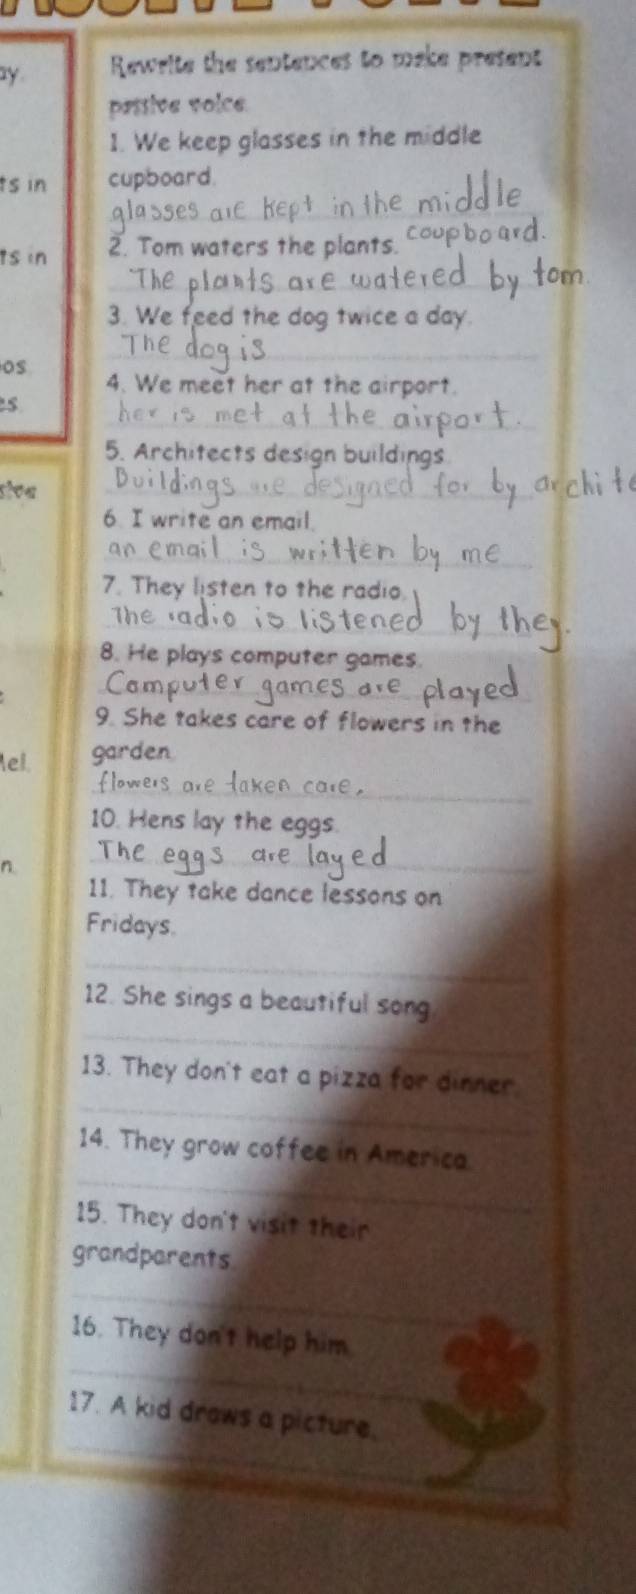 ay.
ts in
ts in
os.
es
Rewrite the sentences to make present
passive voice.
1. We keep glasses in the middle
cupboard.
glasses are kept in the middle
coupboard.
2. Tom waters the plants.
The plants are watered by tom.
3. We feed the dog twice a day.
The dog is
4. We meet her at the airport.
her is met at the airport.
5. Architects design buildings.
Buildings are designed for by archite
6. I write an email.
an email is written by me
7. They listen to the radio.
The radio is listened by they.
8. He plays computer games.
Computer games are played
9. She takes care of flowers in the
garden.
flowers are taken care.
10. Hens lay the eggs.
The eggs are layed
11. They take dance lessons on
Fridays.
12. She sings a beautiful song.
13. They don't eat a pizza for dinner.
14. They grow coffee in America.
15. They don't visit their
grandparents.
16. They don't help him.
17. A kid draws a picture.